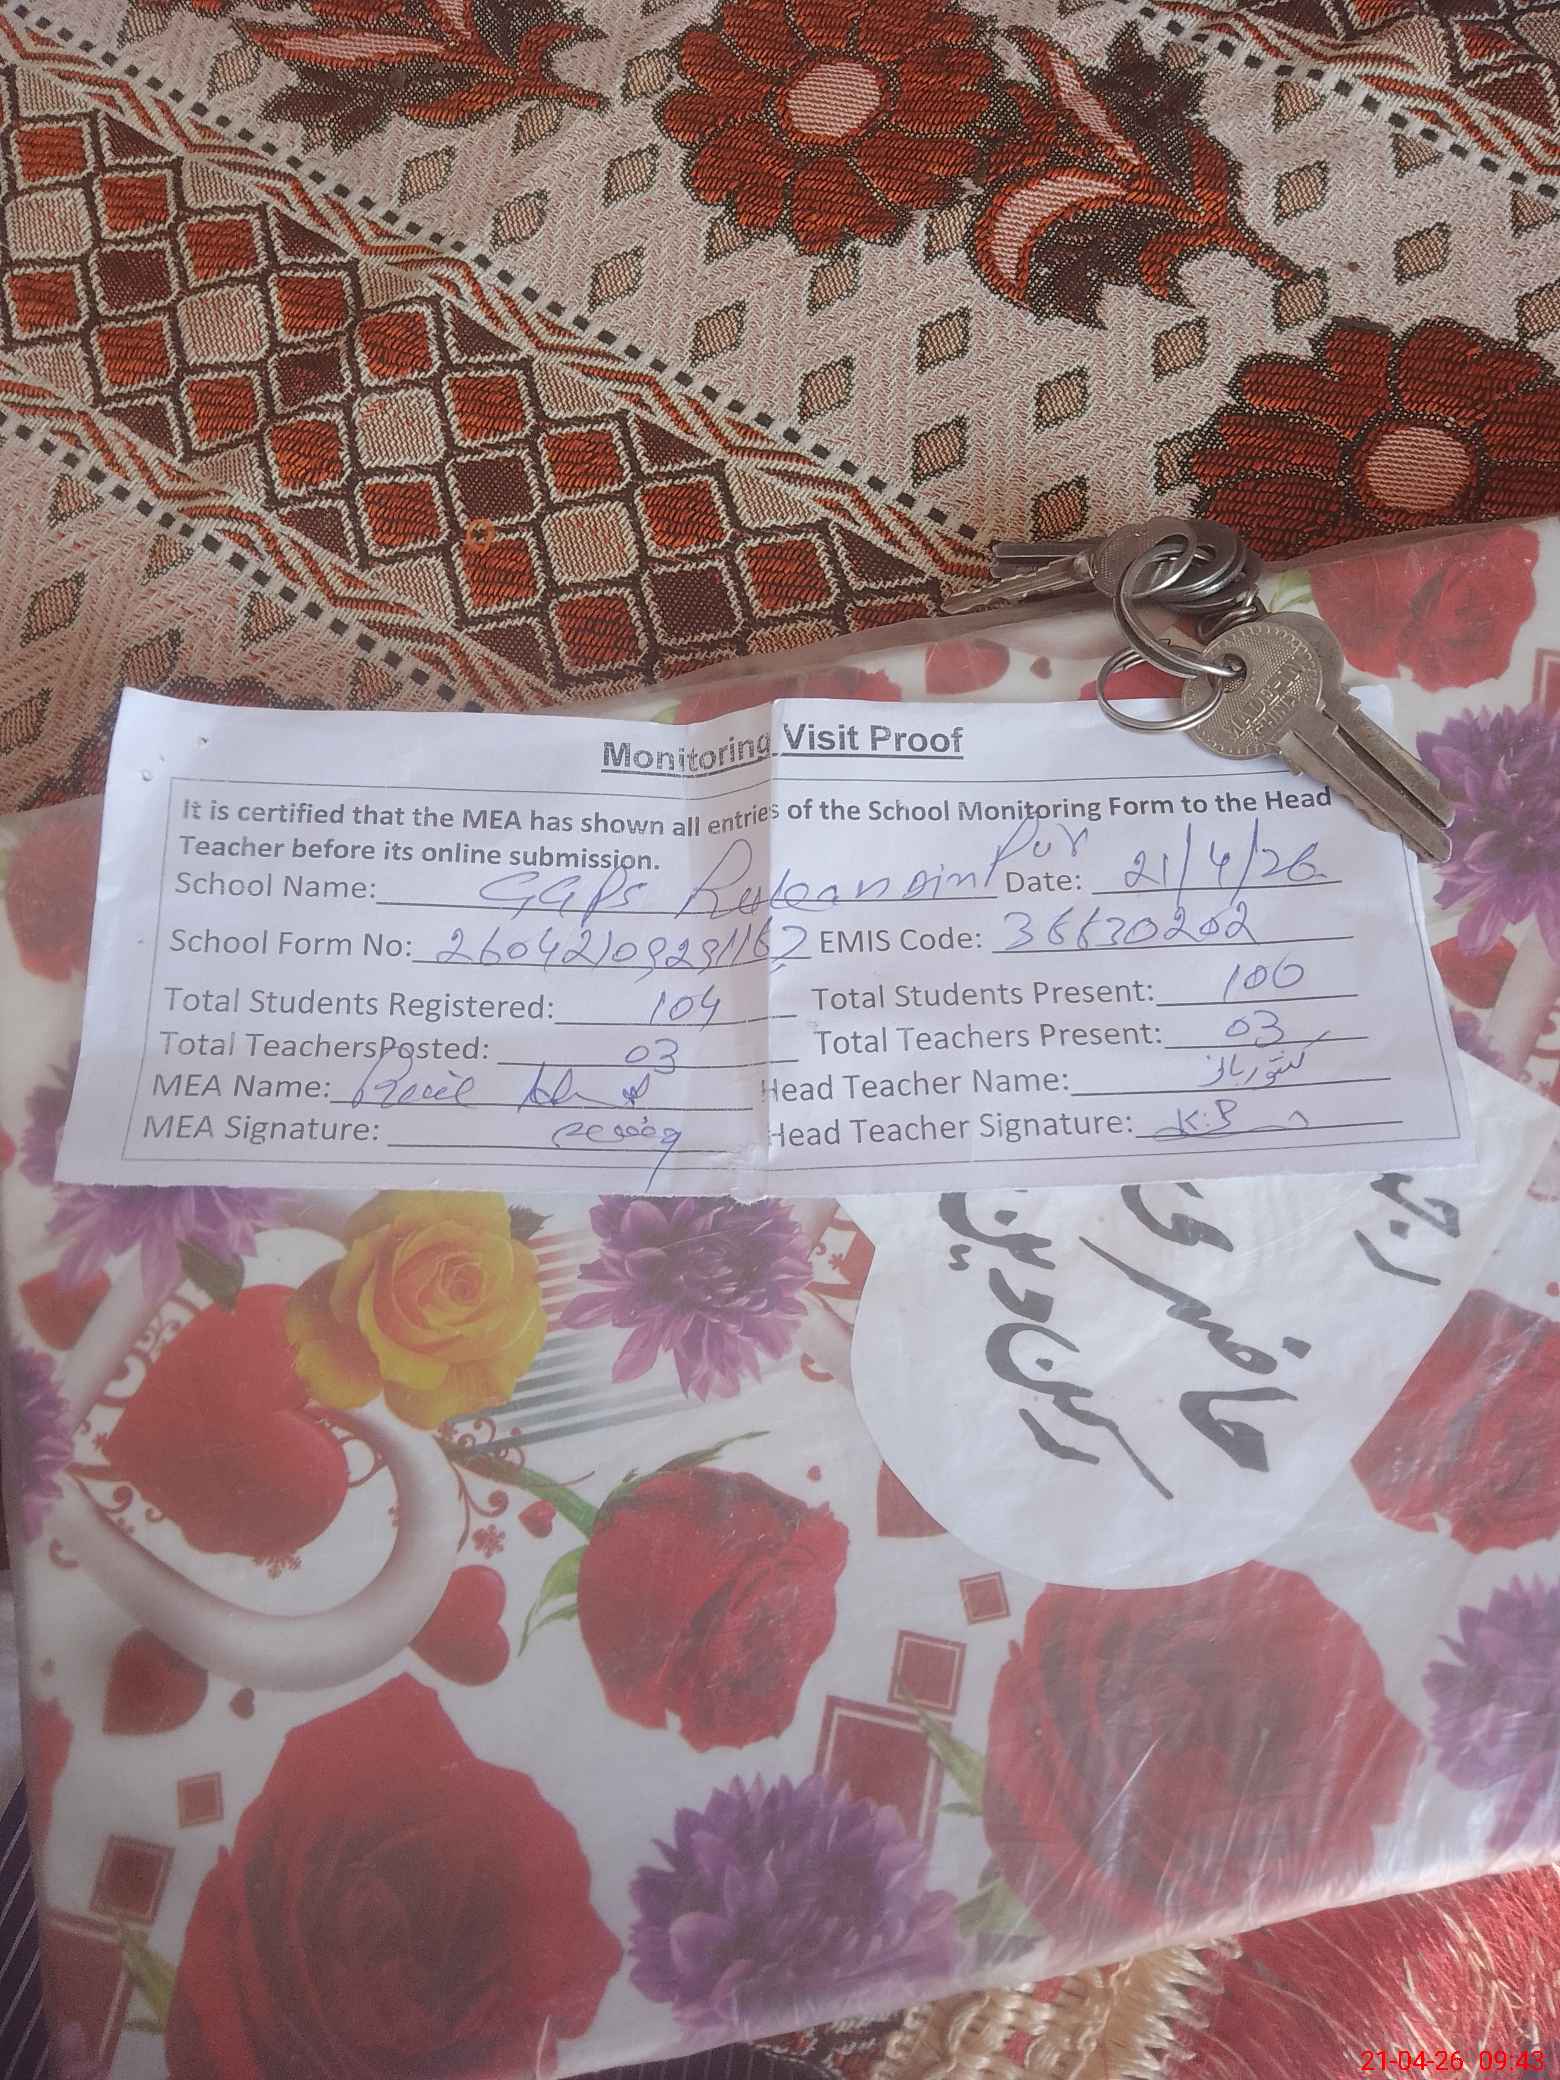 Monitoring Visit Proof
It is certified that the MEA has shown all entries of the School Monitoring Form to the Head
Teacher before its online submission.
School Name: GGPS Pur Date: 21/4/26
School Form No: EMIS Code: 36630202
Total Students Registered: 104 Total Students Present: 100
Total TeachersPosted: 03 Total Teachers Present: 03
MEA Name: Head Teacher Name: کشور
MEA Signature: Head Teacher Signature: K.B
حاضری
21-04-26 09:43